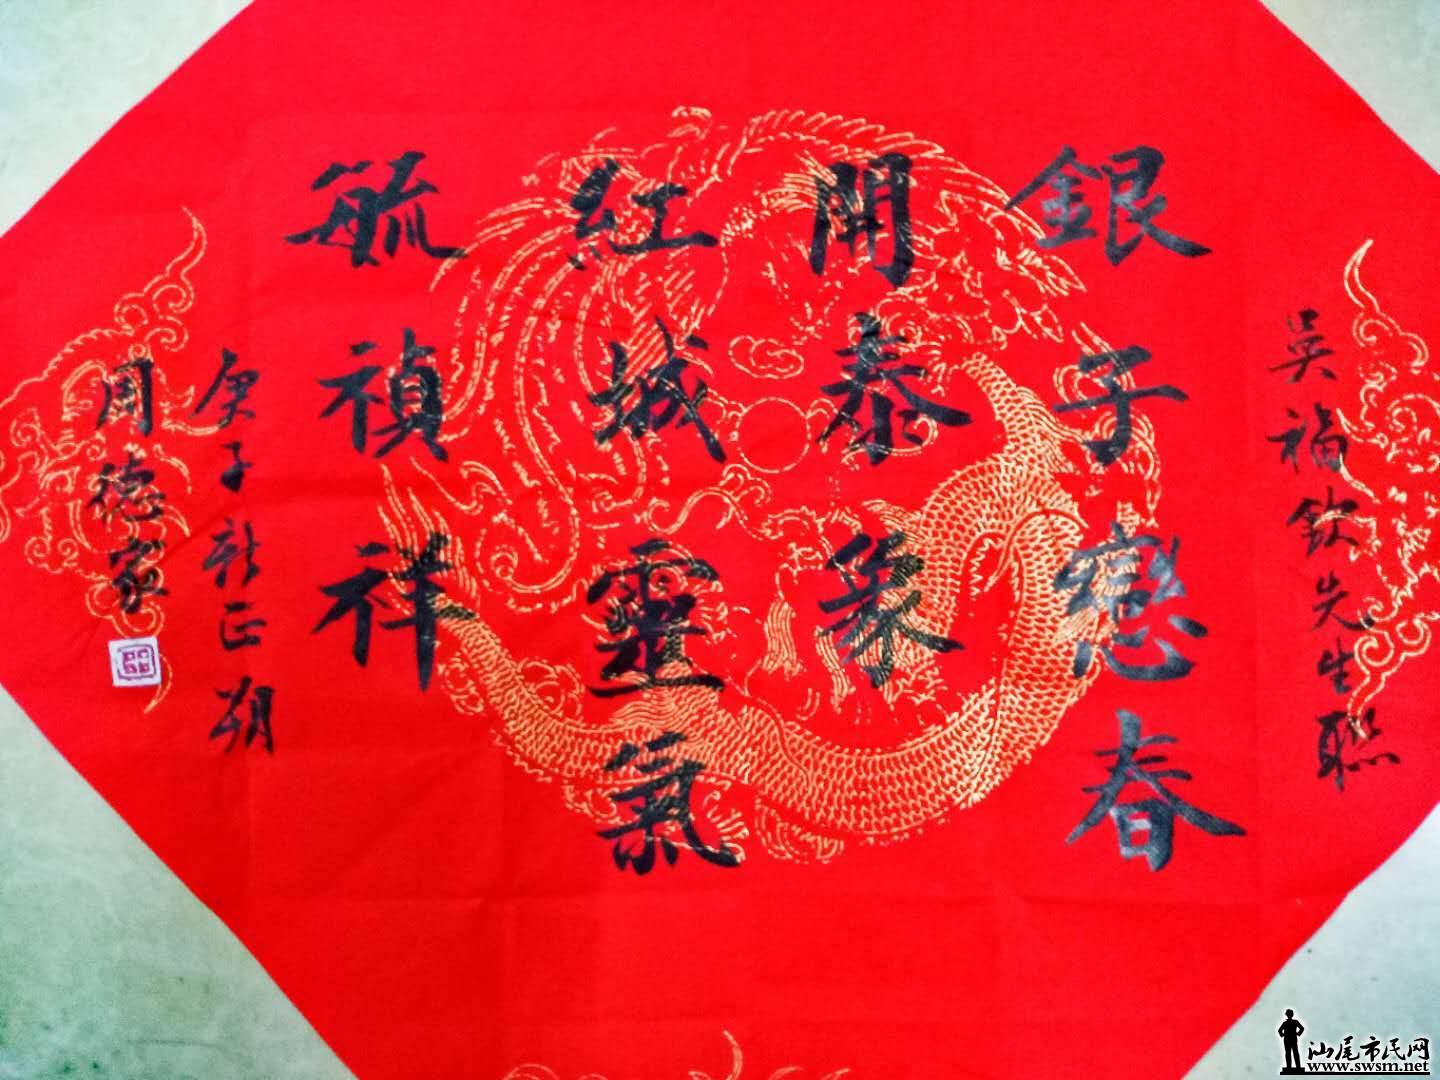 吳福欽先生聯
銀子戀春
開泰象
紅城靈氣
毓禎祥
庚子新正朔
周德家
汕尾市民网
www.swsm.net